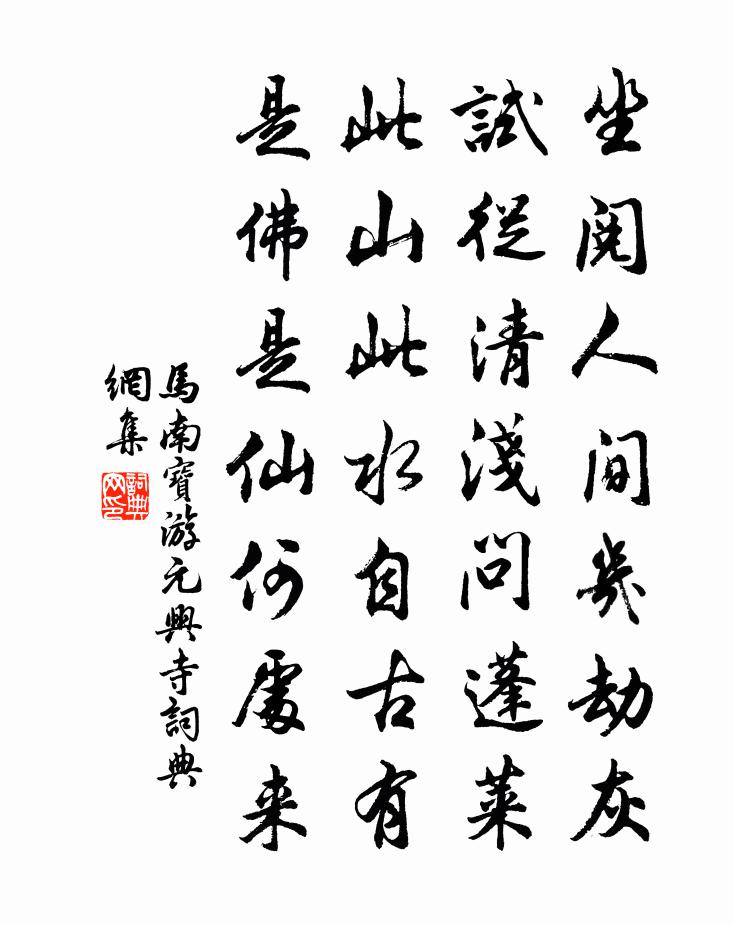 坐閱人間幾劫灰
試從清淺問蓬萊
此山此水自古有
是佛是仙何處来
馬南寶游元興寺詞典
網集
詞典
网印